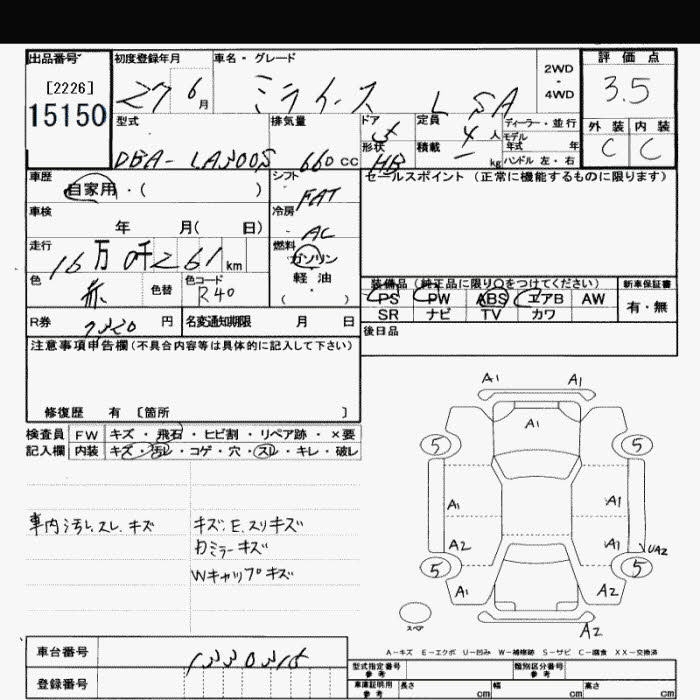 出品番号 初度登録年月 車名・グレード 2WD・4WD 評価点
[2226]
15150
27 6月 ミライース L SA 3.5
型式 排気量 ドア 定員 人 ディーラー・並行 外装 内装
形状 積載 kg モデル年式 年 ハンドル 左・右
DBA-LA300S 660cc 5 4 C C
HB
車歴 シフト セールスポイント(正常に機能するものに限ります)
自家用・( ) FAT
車検 冷房
年 月( 日) AC
走行 燃料
16万0千261km ガソリン
色 色替 色コード 軽油
赤 R40 (・)
装備品(純正品に限り○をつけてください) 新車保証書
PS PW ABS エアB AW 有・無
SR ナビ TV カワ
R券 円 名変通知期限 月 日
後日品
注意事項申告欄(不具合内容等は具体的に記入して下さい)
修復歴 有 [箇所 ]
検査員 FW キズ・飛石・ヒビ割・リペア跡・×要
記入欄 内装 キズ・汚レ・コゲ・穴・スレ・キレ・破レ
車内汚レ.スレ.キズ キズ.E.スリキズ
カミラーキズ
Wキャップキズ
A1 A1
A1
5 5
A1 A1
A2 A1 UA2
5 5
A1 A2
スペア
A2
A-キズ E-エクボ U-凹み W-補修跡 S-サビ C-腐食 XX-交換済
車台番号
登録番号
型式指定番号 参考 類別区分番号 参考
車庫証明用 参考 長さ cm 幅 cm 高さ cm